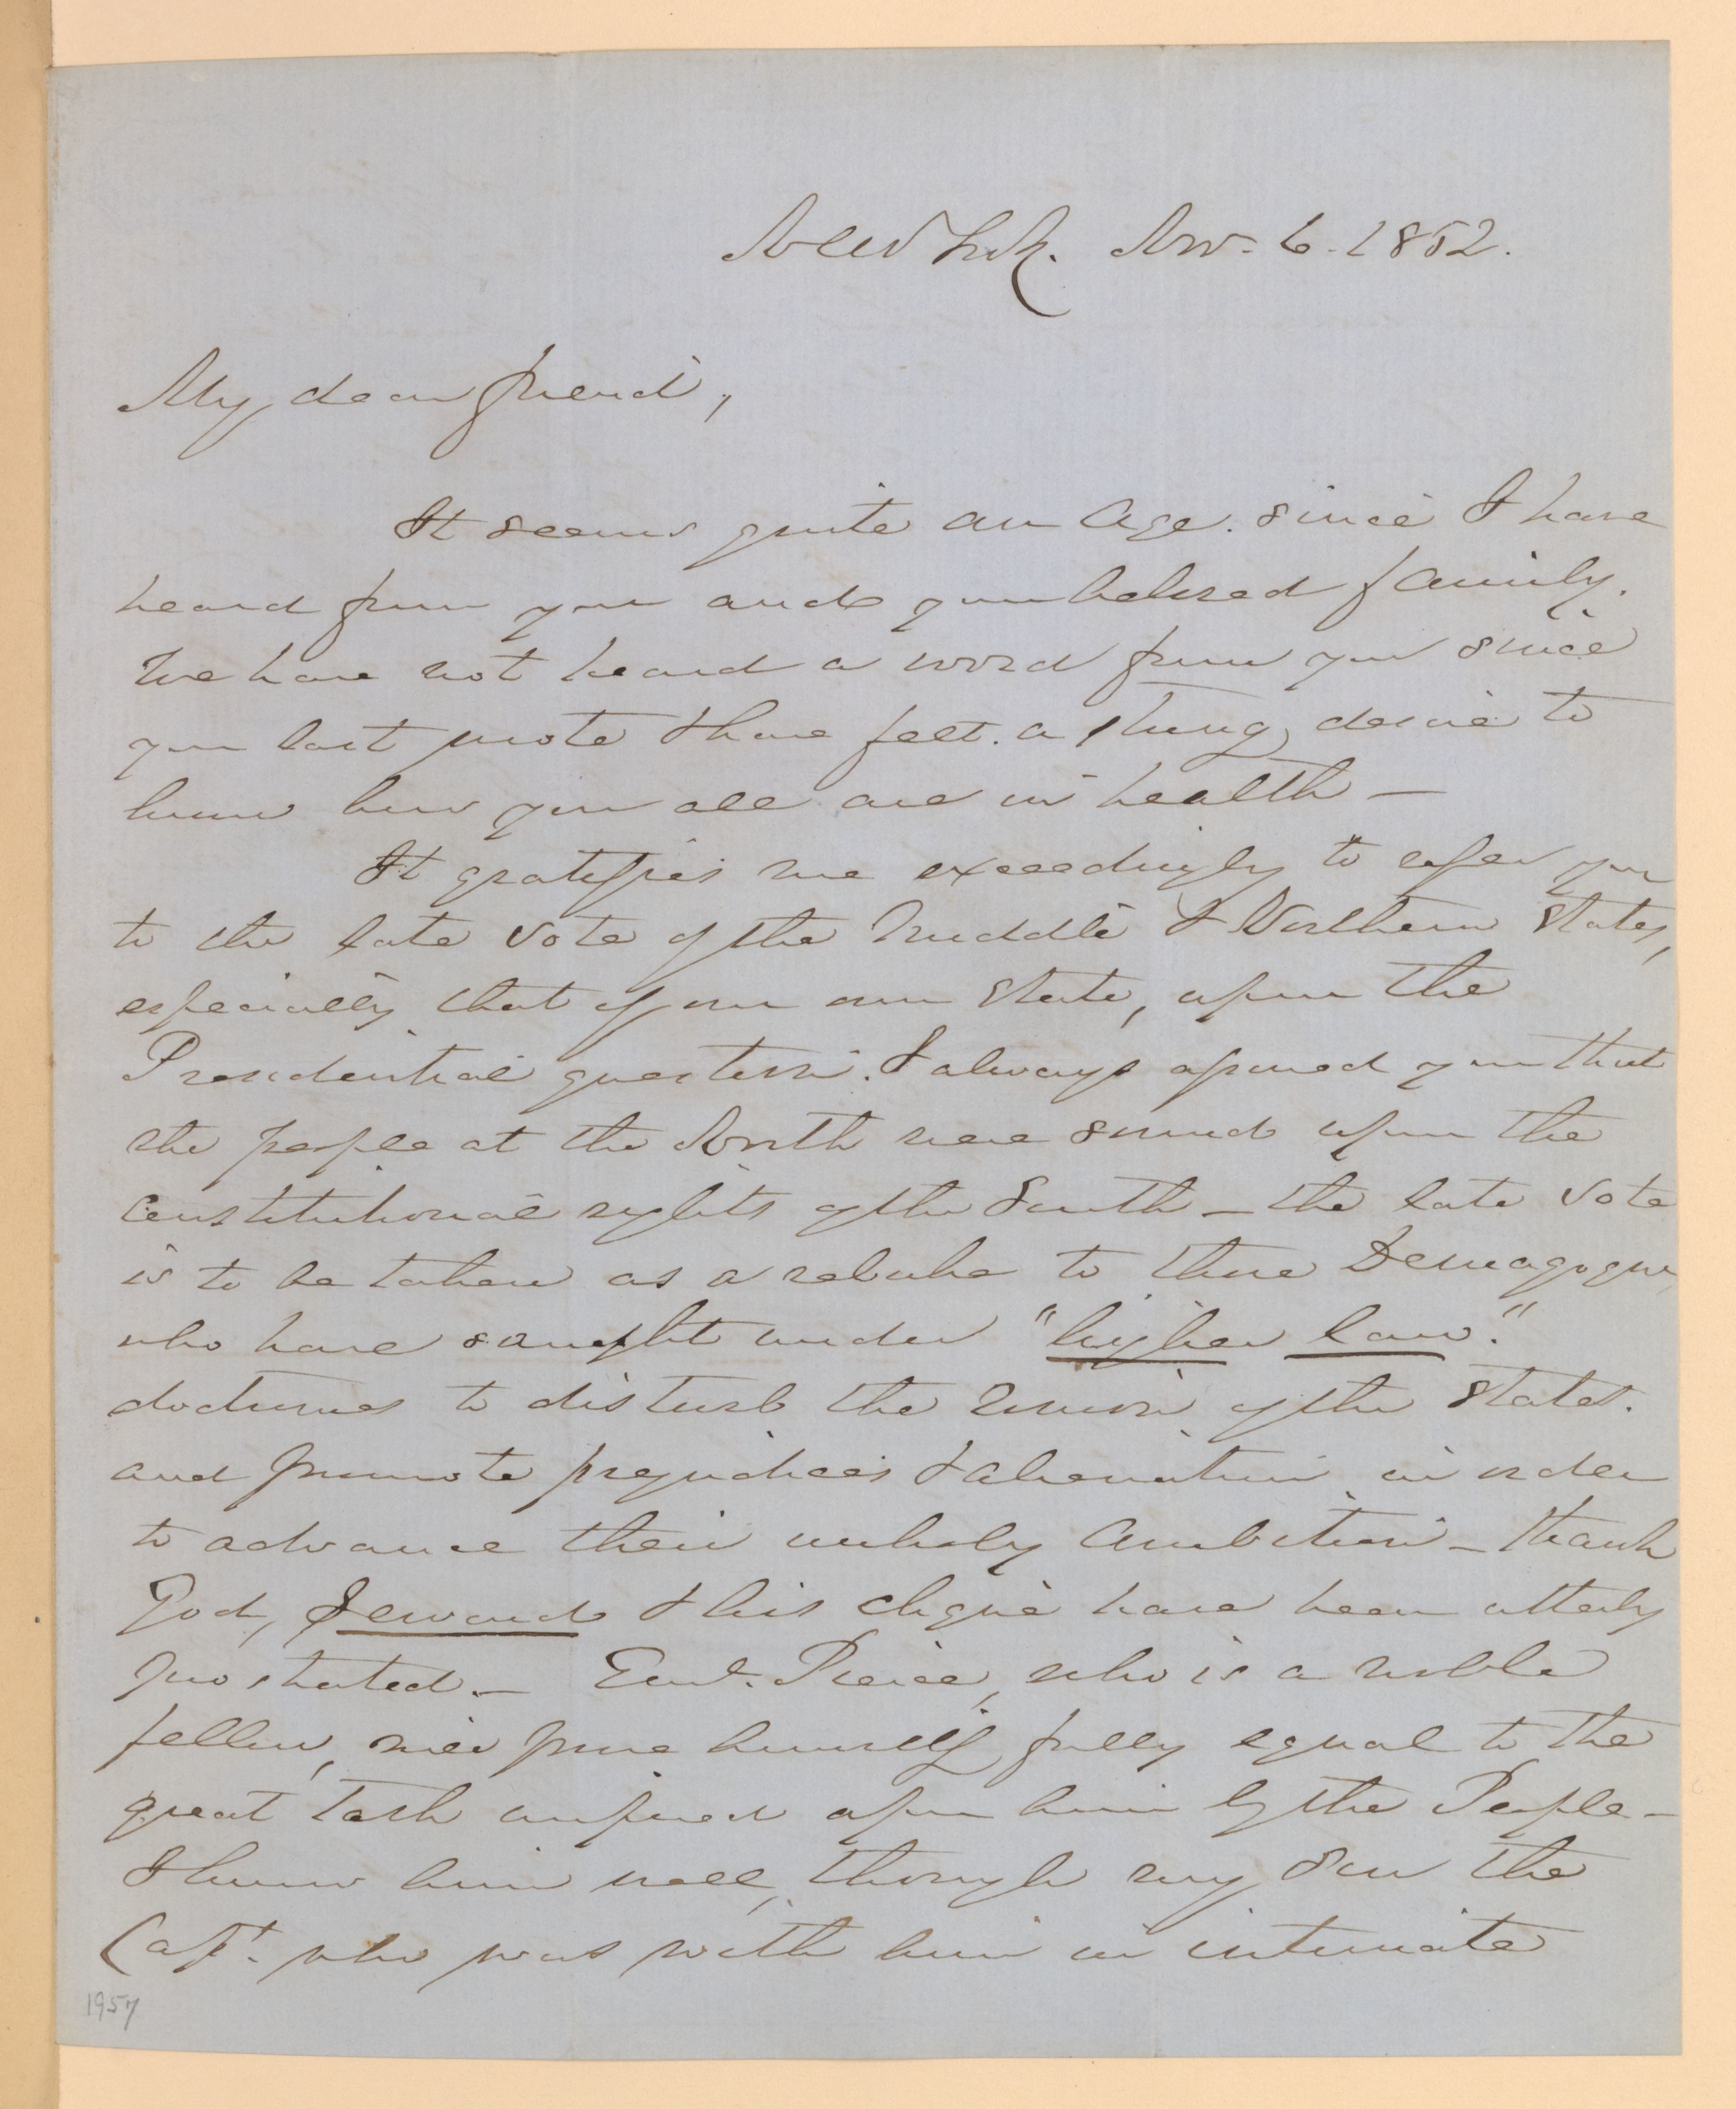 New York. Nov. 6. 1852.
My dear friend,
It seems quite an age. since I have
heard from you and your beloved family.
We have not heard a word from you since
you last wrote & have felt. a strong desire to
know how you all are in health —
It gratifies me exceedingly to refer you
to the late vote of the Middle & Northern States,
especially that of our own State, upon the
Presidential question. I always assured you that
the people at the North were sound upon the
Constitutional rights of the South — the late vote
is to be taken as a rebuke to those Demagogues
who have sought under "higher law."
doctrines to disturb the union of the States.
and promote prejudices & alienation in order
to advance their unholy ambition — thank
God, Seward & his clique have been utterly
prostrated. — Genl. Pierce, who is a noble
fellow, will prove himself fully equal to the
great task conferred upon him by the People —
I know him well, through my Son the
Capt. who was with him in intimate
1957